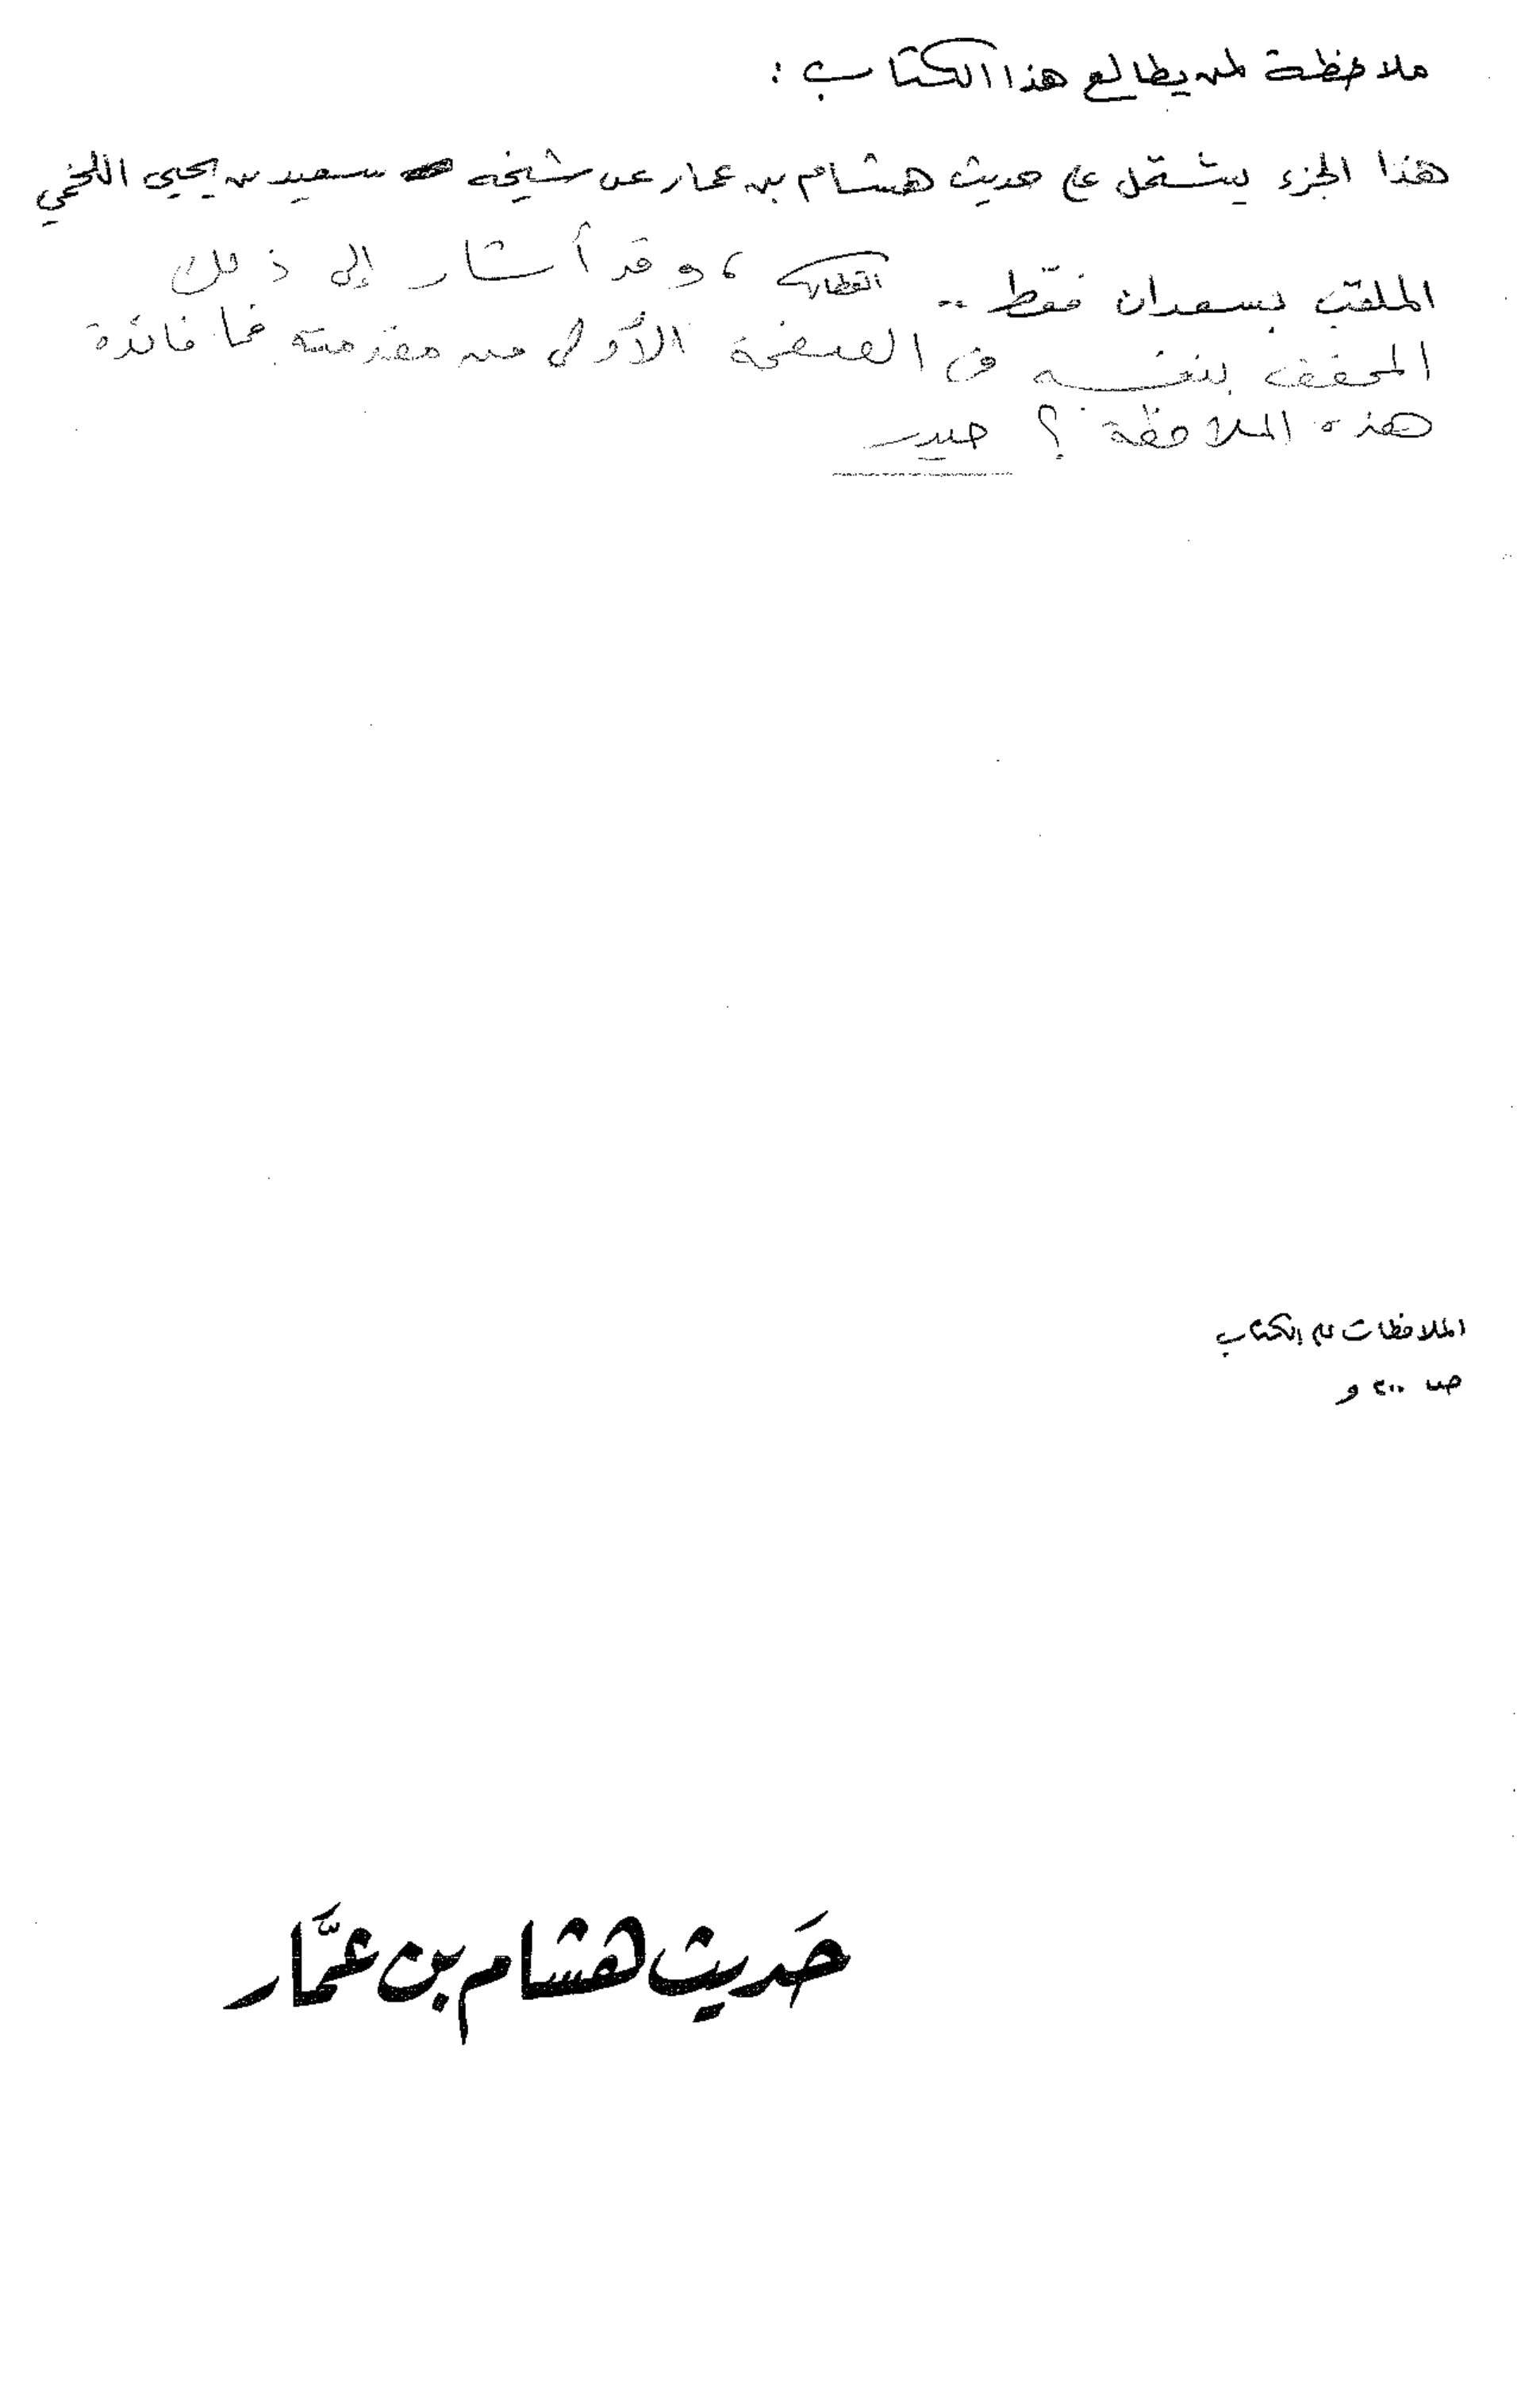 ملاحظة لمن يطالع هذا الكتاب :
هذا الجزء يشتمل على حديث هشام بن عمار عن شيخه سعيد بن يحيى اللخمي
الملقب بسعدان فقط .. ، وقد أشار إلى ذلك
المحقق بنفسه في الصفحة الأولى من مقدمته فما فائدة
هذه الملاحظة ؟ حيدر
الملاحظات على الكتاب
ص ٢٠٠ و
حَديث هشام بن عمَّار